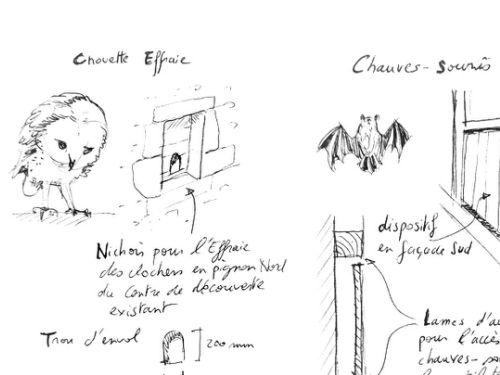 Chouette Effraie
Nichoir pour l'Effraie
des clochers en pignon Nord
du Centre de découverte
existant
Trou d'envol
200 mm
Chauves-Souris
dispositif
en façade Sud
Lames d'a
pour l'accès
chauves-so